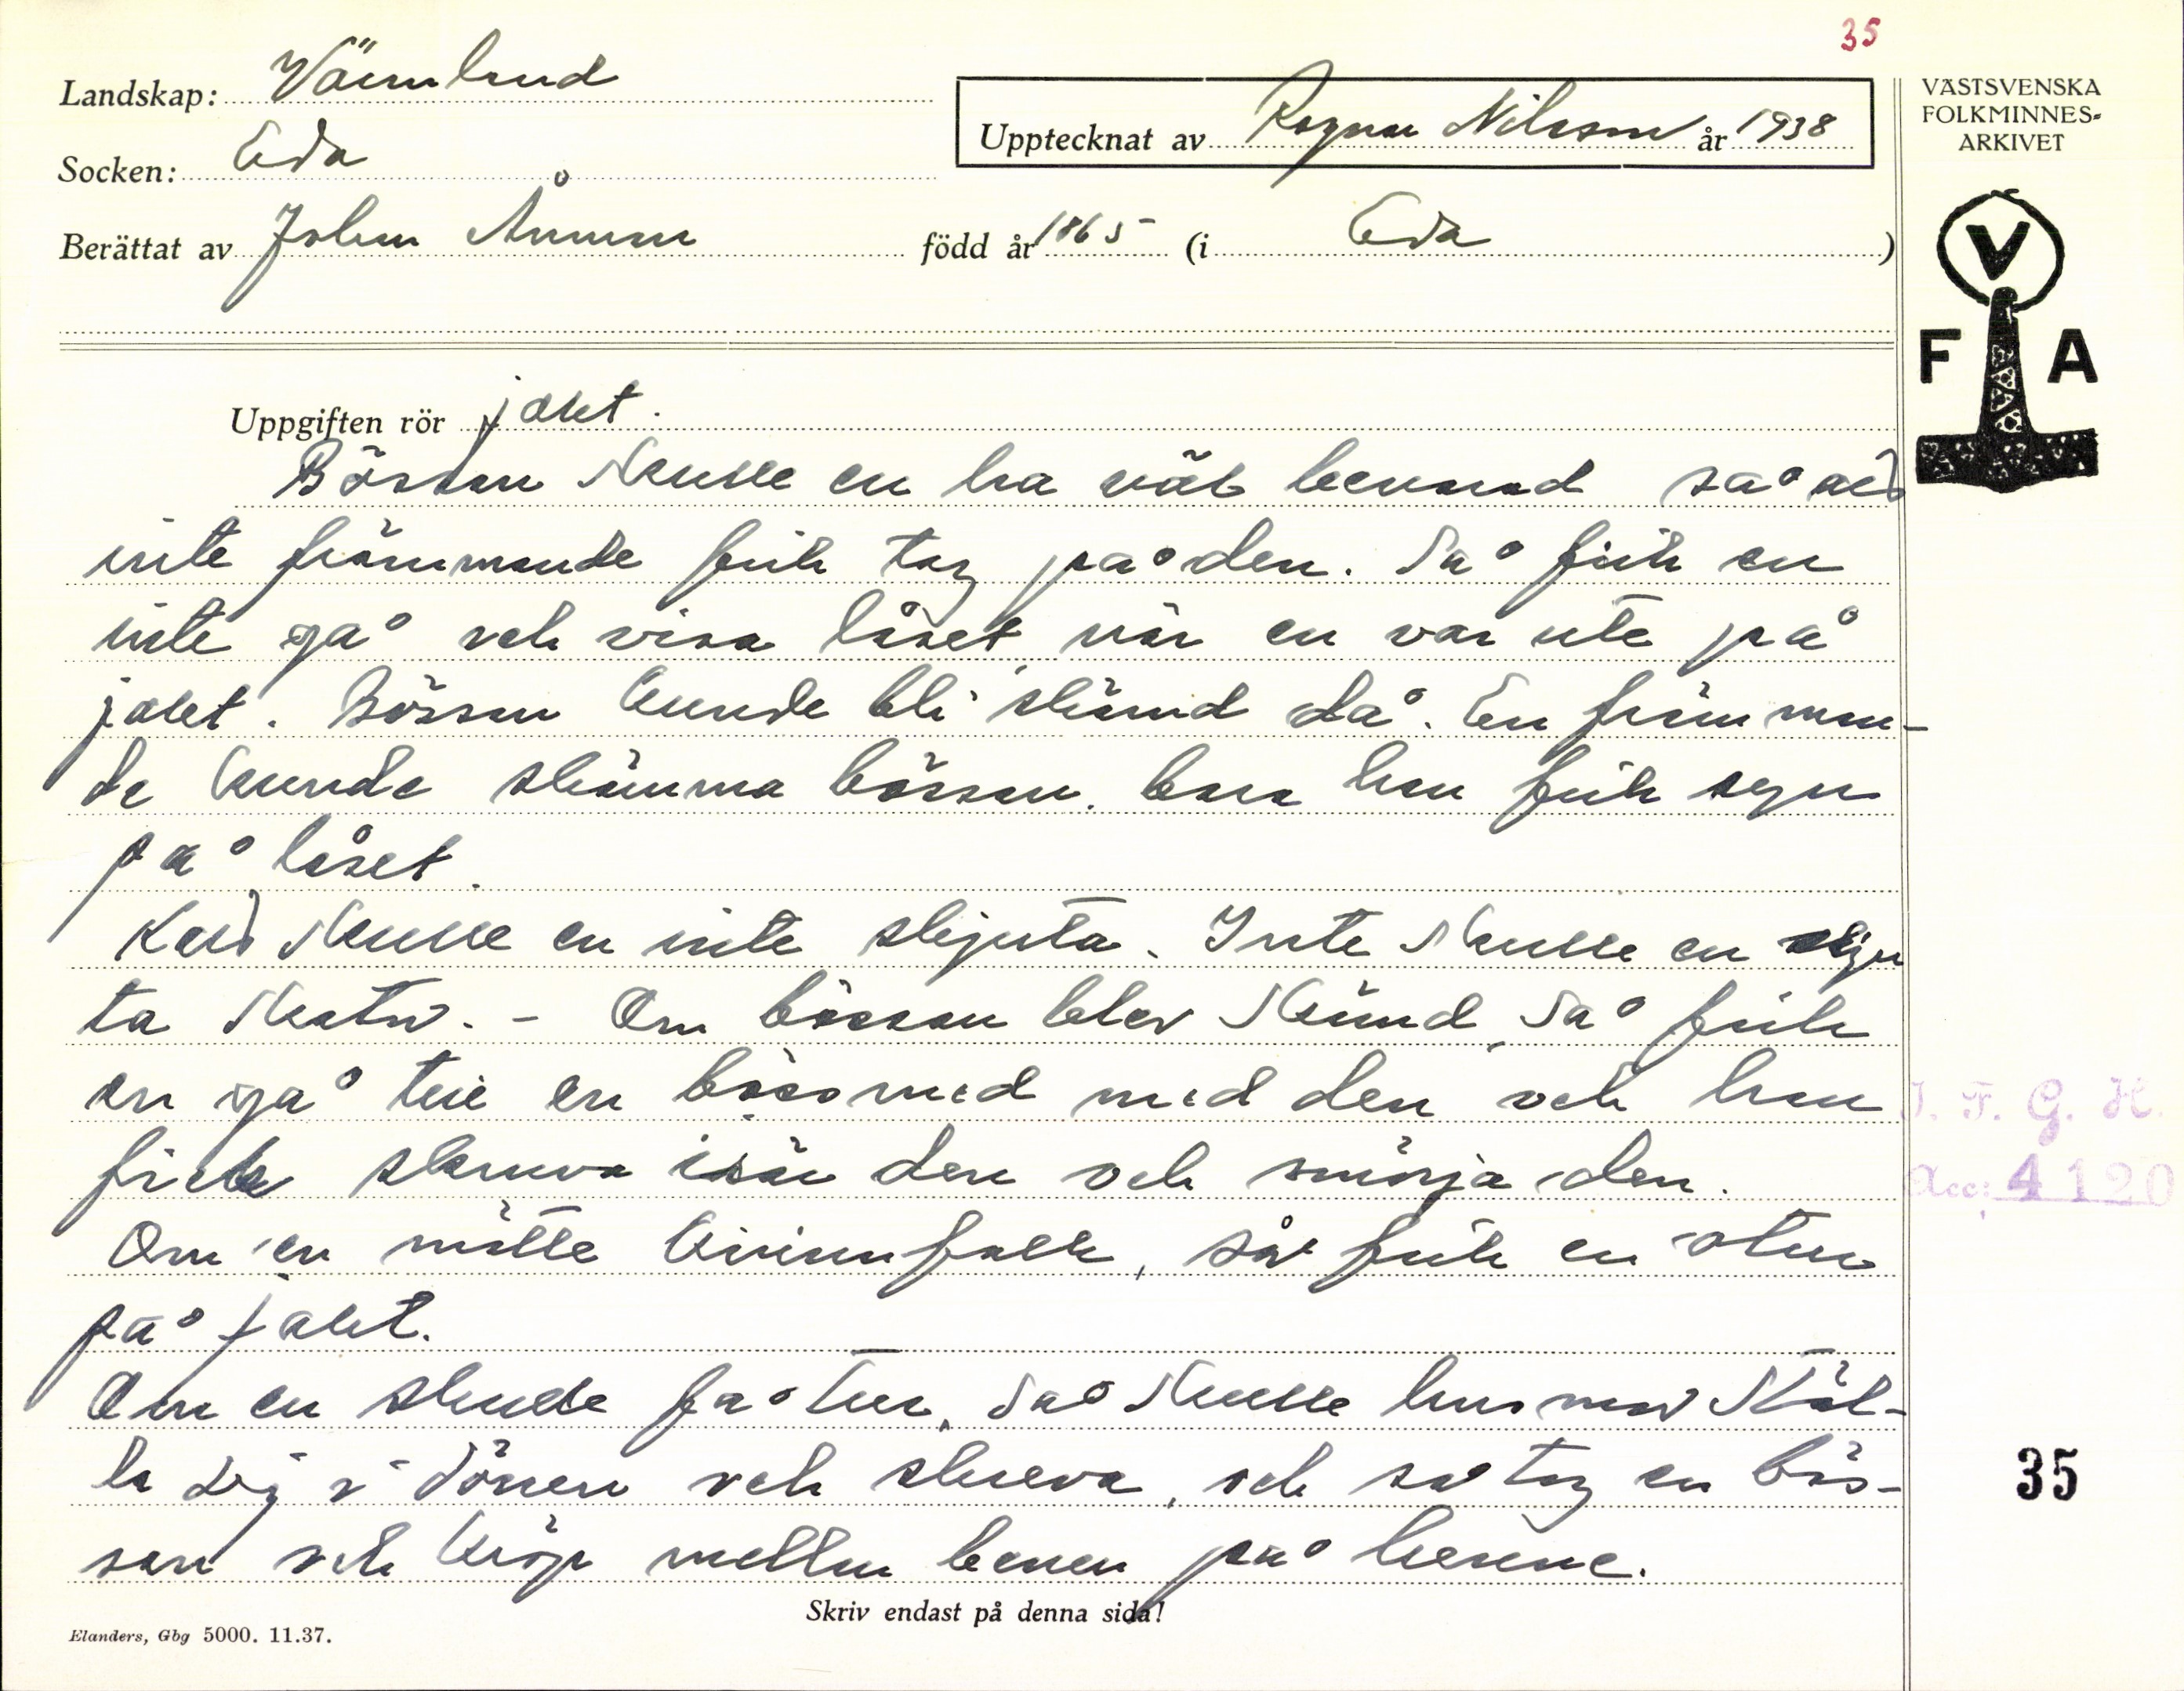 35
Landskap: Värmland
Socken: Eda
Upptecknat av Ragnar Nilsson år 1938
Berättat av Johan Åman född år 1865 (i Eda)
VÄSTSVENSKA
FOLKMINNES-
ARKIVET
V
F A
Uppgiften rör jakt.
Bössan skulle en ha väl bevarad så att
inte främmande fick tag på den. Så fick en
inte gå och visa låset, när en var ute på
jakt. Bössan kunde bli skämd då. En främman-
de kunde skämma bössan, bara han fick syn
på låset.
Katt skulle en inte skjuta. Inte skulle en skju
ta skator. - Om bössan blev skämd, så fick
en gå till en bössmed med den och han
fick skruva isär den och smörja den.
Om en mötte kvinnfolk, så fick en otur
på jakt.
Om en skulle få tur, så skulle husmor stäl-
la sig i dörren och skreva, och så tog en bös-
san och kröp mellan benen på henne.
I. F. G. H.
Acc: 4120
35
Skriv endast på denna sida!
Elanders, Gbg 5000. 11.37.